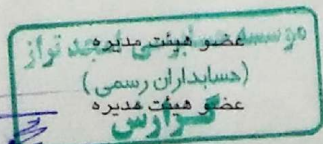 موسسه حسابرسی امجد تراز
عضو هیئت مدیره
(حسابداران رسمی)
عضو هیئت مدیره
گزارش